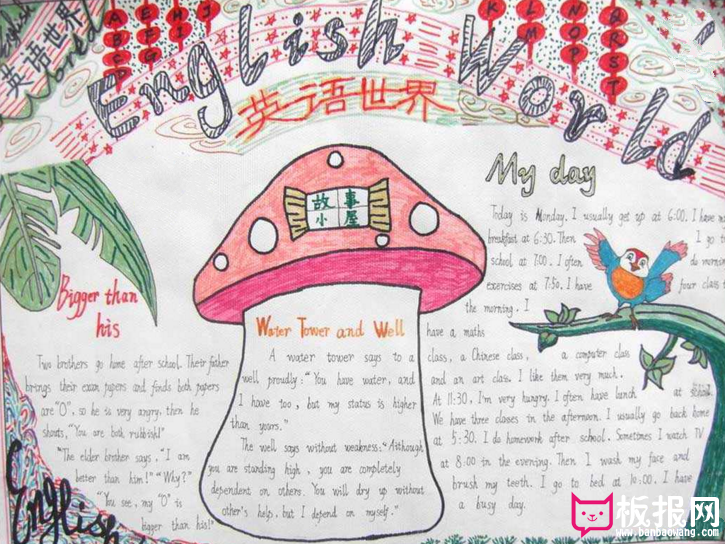 英语世界
A B C D
E F G
H I
J
K
L M
N O P
Q R S T
English World
英语世界
My day
故事
小屋
Today is Monday. I usually get up at 6:00. I have my
breakfast at 6:30. Then I go to
school at 7:00. I often do morning
exercises at 7:50. I have four class
the morning. I
have a maths
class, a Chinese class, a computer class
and an art class. I like them very much.
At 11:30, I'm very hungry. I often have lunch at school.
We have three classes in the afternoon. I usually go back home
at 5:30. I do homework after school. Sometimes I watch TV
at 8:00 in the evening. Then I wash my face and
brush my teeth. I go to bed at 10:00. I have
a busy day.
Bigger than
his
Two brothers go home after school. Their father
brings their exam papers and finds both papers
are "0", so he is very angry, then he
shouts, "You are both rubbish!"
"The elder brother says. "I am
better than him!" "Why?"
"You see, my "0" is
bigger than his!"
Water Tower and Well
A water tower says to a
well proudly: "You have water, and
I have too, but my status is higher
than yours."
The well says without weakness: "Although
you are standing high, you are completely
dependent on others. You will dry up without
other's help, but I depend on myself."
English
板报网
www.banbaowang.com